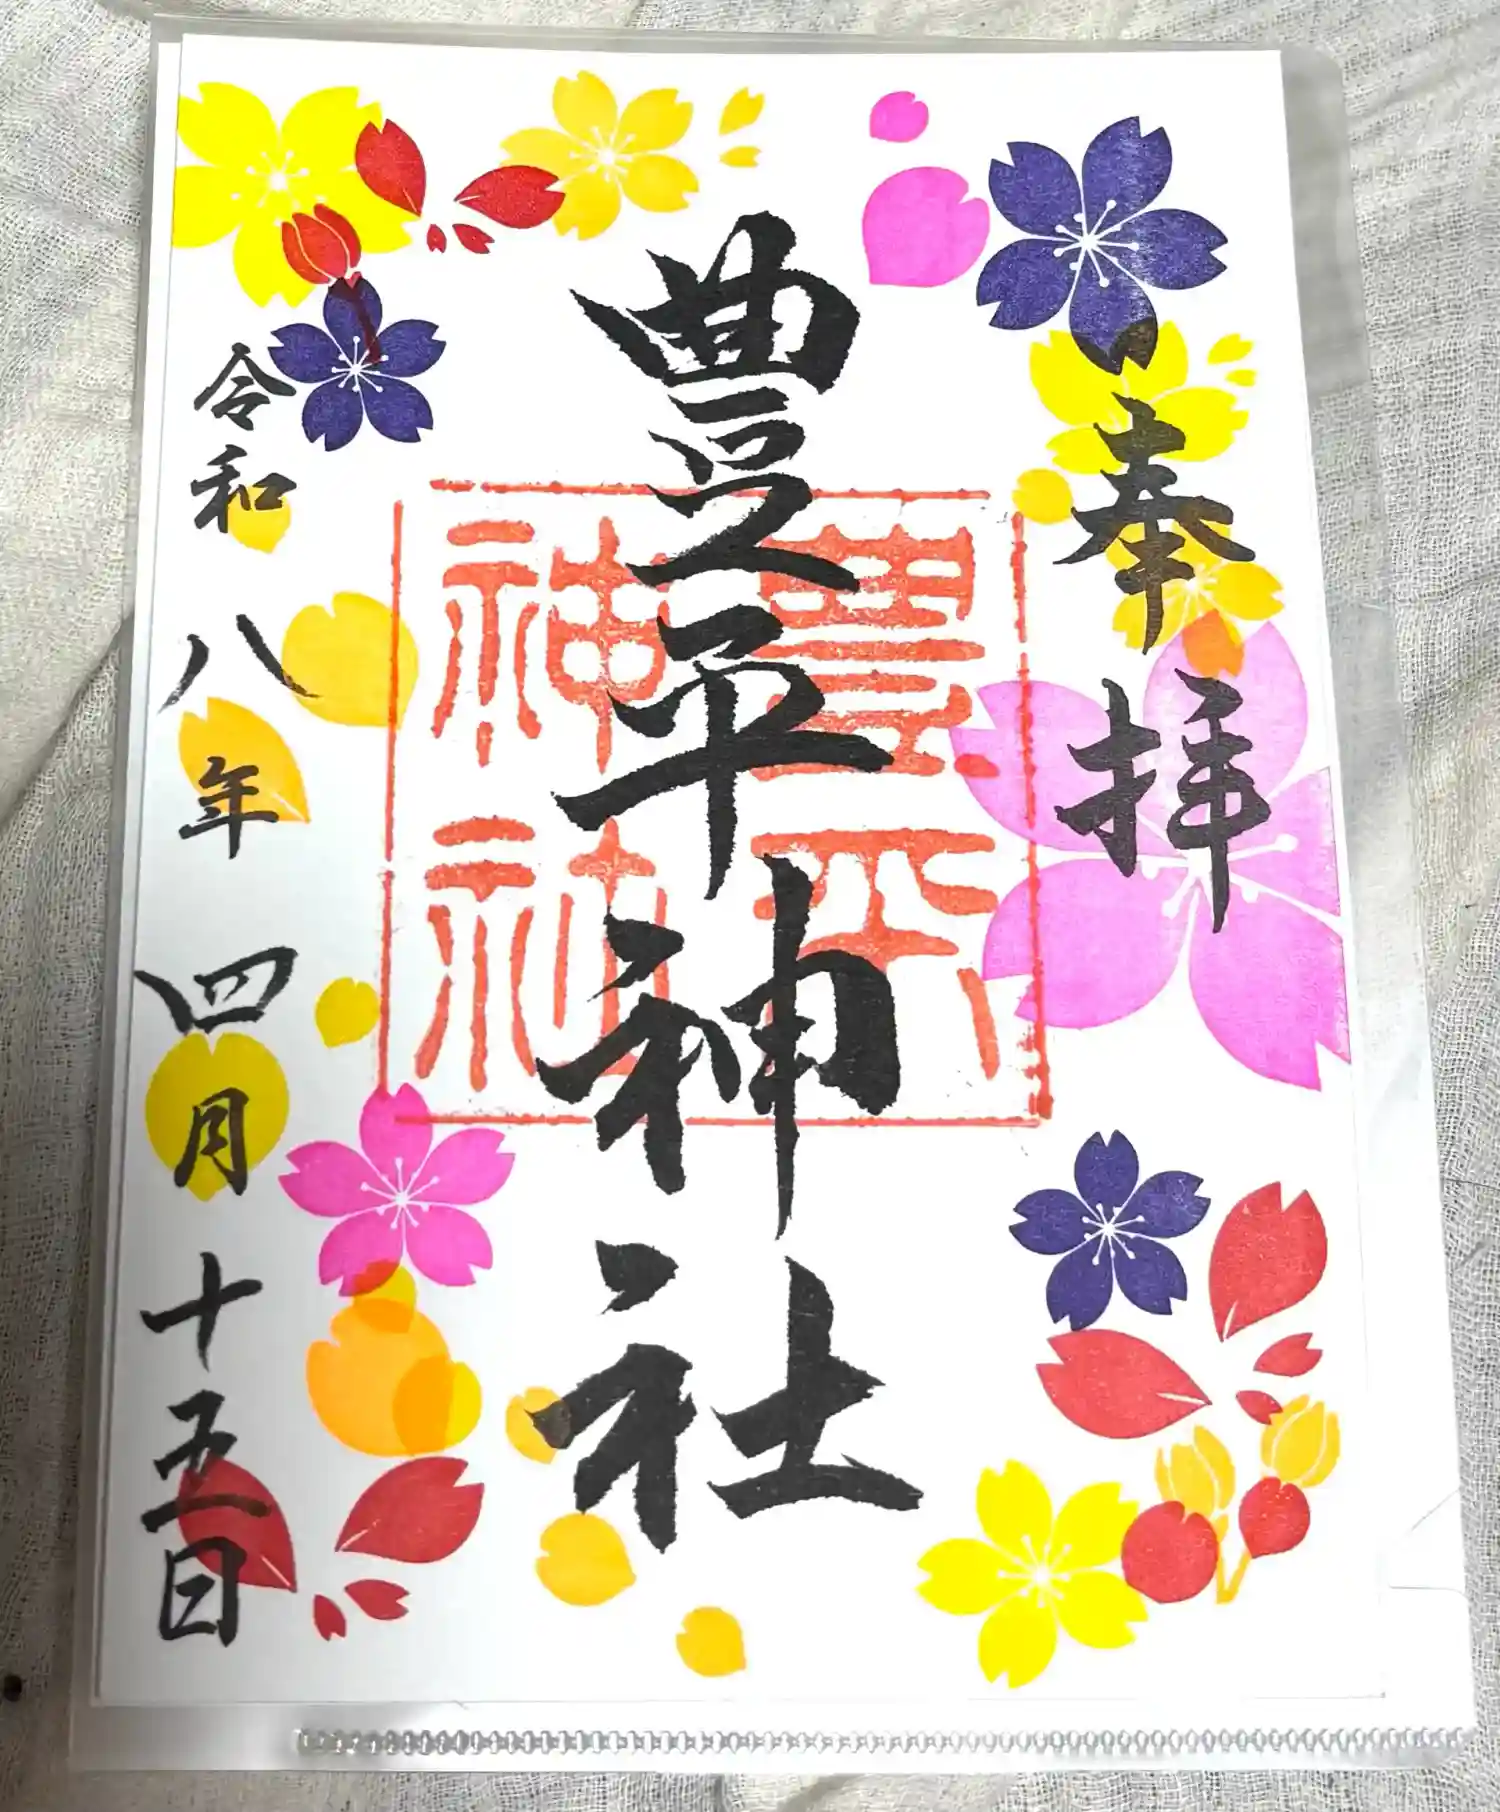 奉拝
豊平神社
豊平
神社
令和八年四月十五日